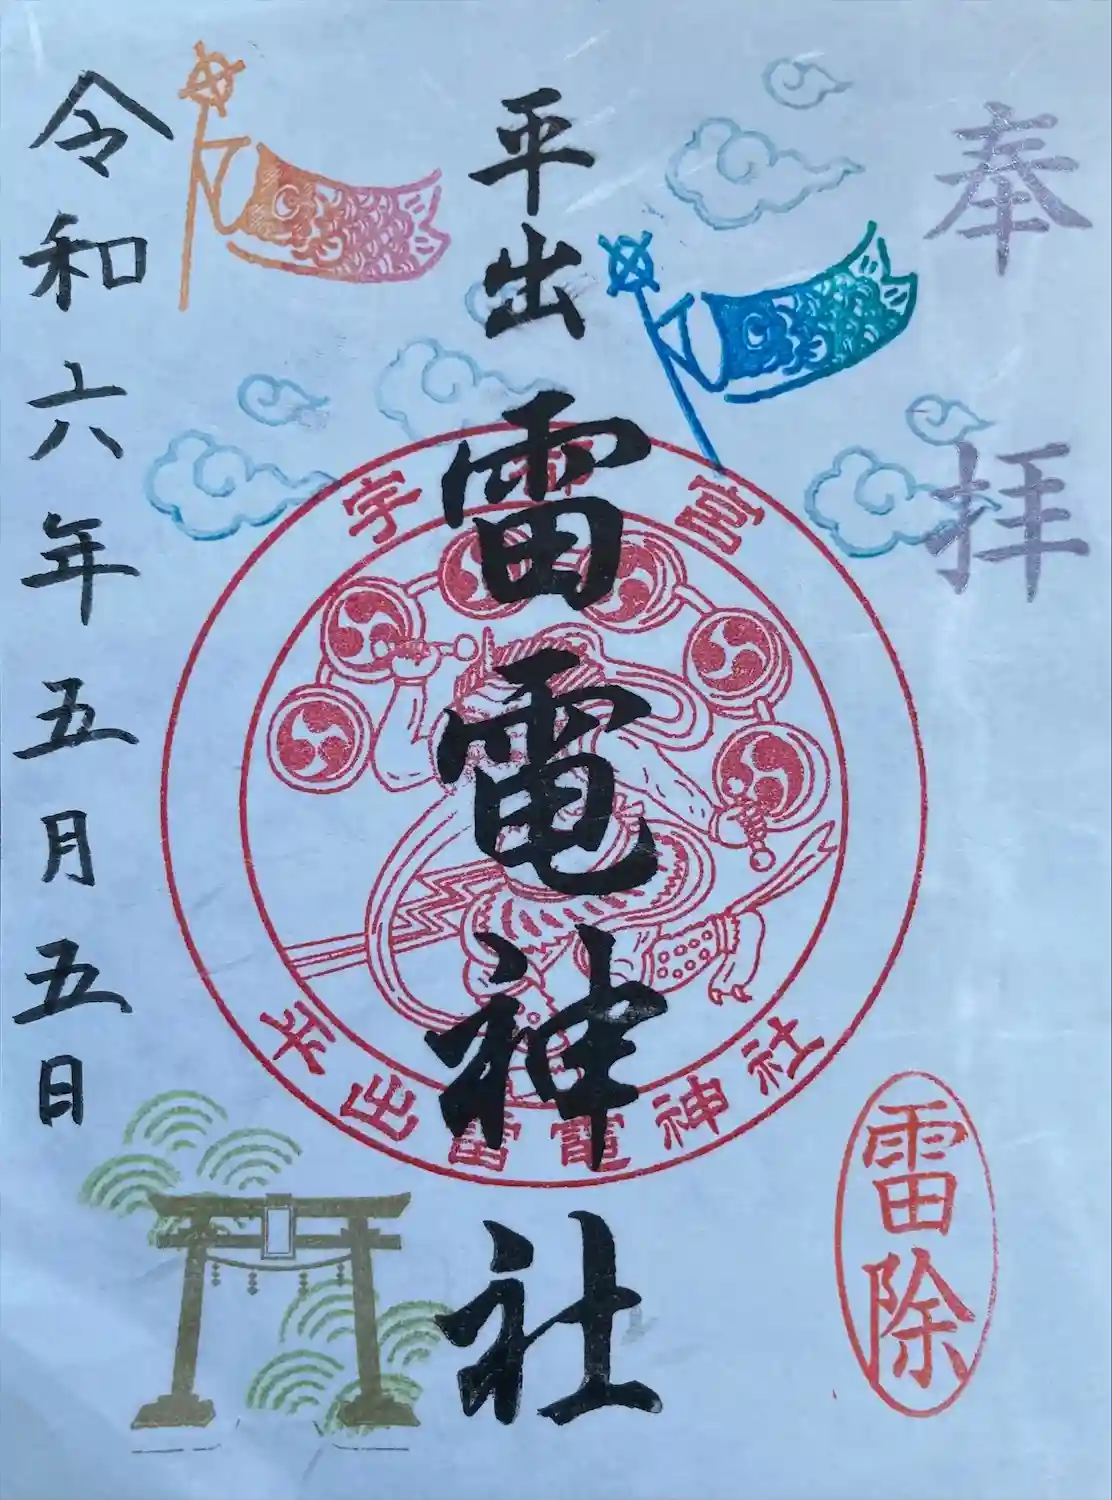 奉拝
平出
雷電神社
令和六年五月五日
宇都宮
平出雷電神社
雷除